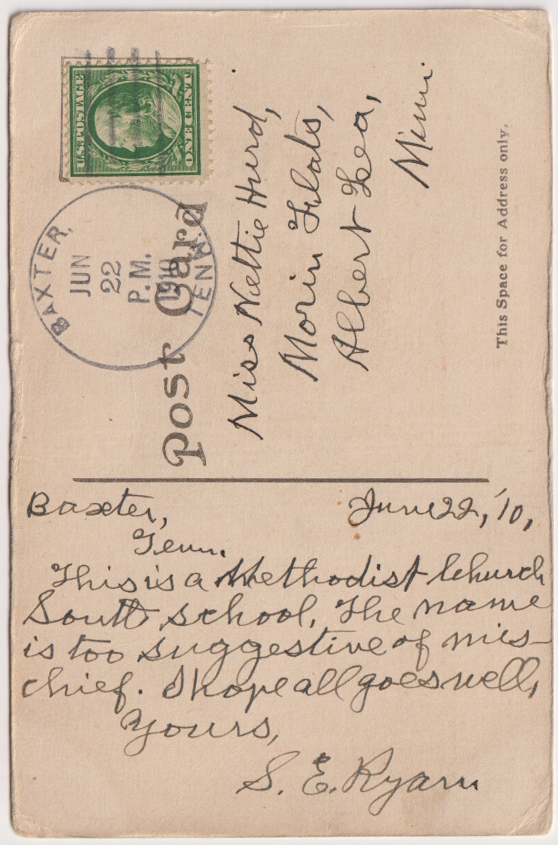 U.S. POSTAGE
ONE CENT
BAXTER,
TENN.
JUN
22
P.M.
1910
Post Card
Miss Nettie Hurd,
Morin Flats,
Albert Lea,
Minn.
This Space for Address only.
Baxter,
Tenn.
June 22, '10,
This is a Methodist Church
South school. The name
is too suggestive of mis-
chief. I hope all goes well,
Yours,
S. E. Ryan